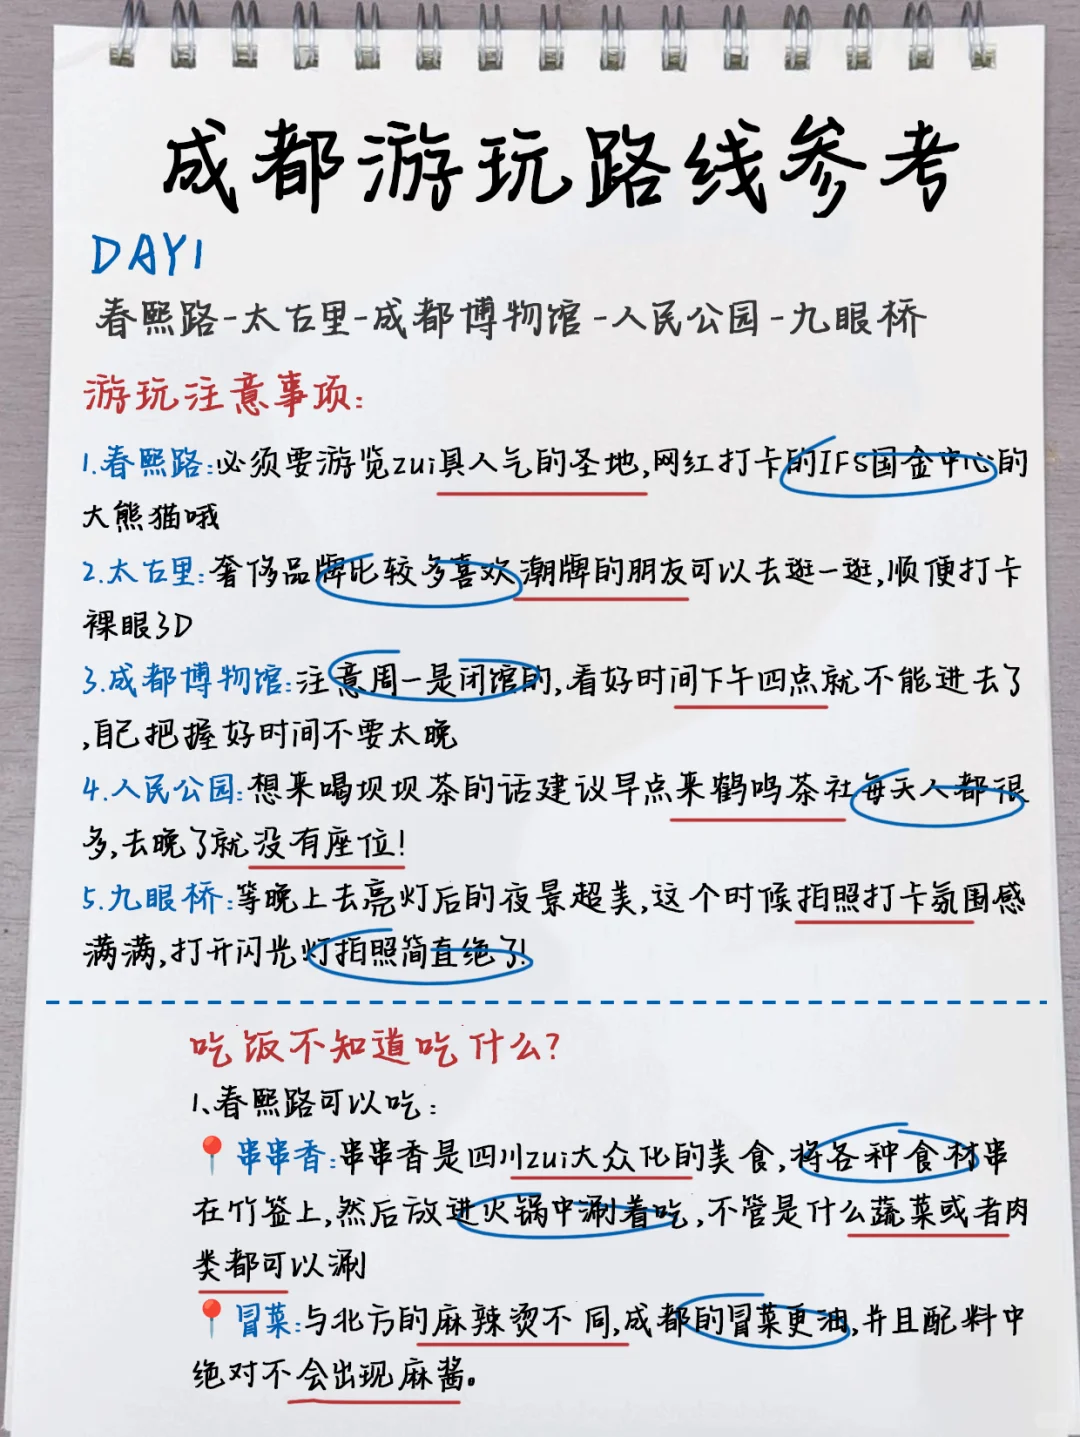 成都游玩路线参考
DAY1
春熙路-太古里-成都博物馆-人民公园-九眼桥
游玩注意事项:
1.春熙路:必须要游览zui具人气的圣地,网红打卡的IFS国金中心的
大熊猫哦
2.太古里:奢侈品牌比较多喜欢潮牌的朋友可以去逛一逛,顺便打卡
裸眼3D
3.成都博物馆:注意周一是闭馆的,看好时间下午四点就不能进去了
,自己把握好时间不要太晚
4.人民公园:想来喝坝坝茶的话建议早点来鹤鸣茶社每天人都很
多,去晚了就没有座位!
5.九眼桥:等晚上去亮灯后的夜景超美,这个时候拍照打卡氛围感
满满,打开闪光灯拍照简直绝了!
吃饭不知道吃什么?
1、春熙路可以吃:
串串香:串串香是四川zui大众化的美食,将各种食材串
在竹签上,然后放进火锅中涮着吃,不管是什么蔬菜或者肉
类都可以涮
冒菜:与北方的麻辣烫不同,成都的冒菜更油,并且配料中
绝对不会出现麻酱。